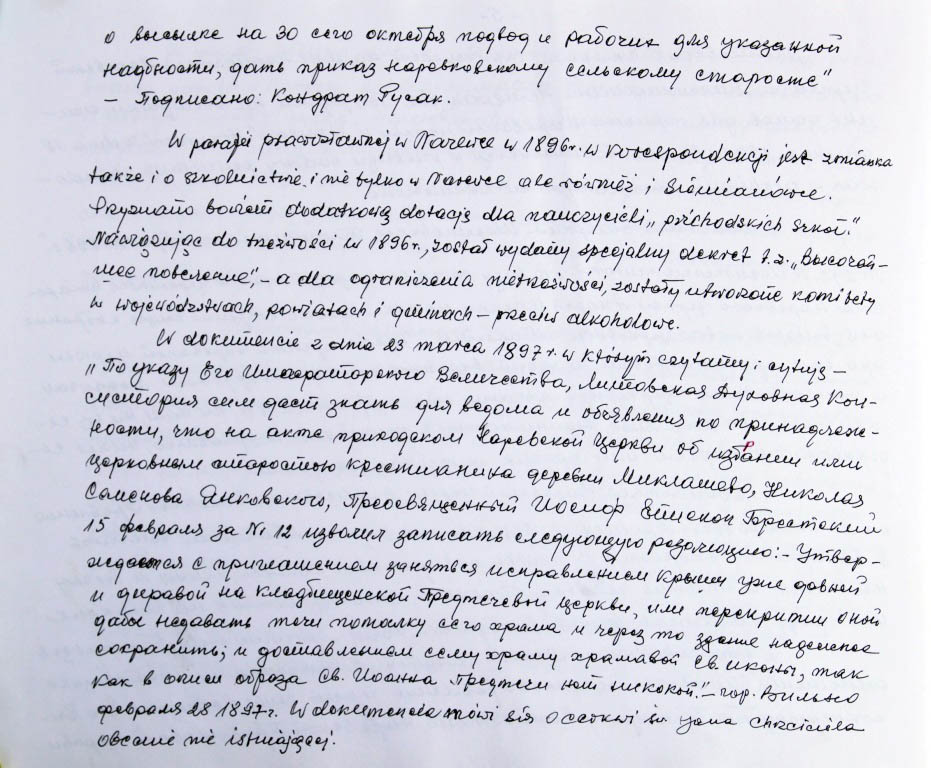 о высылке на 30 сего октября подвод и рабочих для указанной
надбности, дать приказ Наревковскому сельскому старосте"
– Подписано: Кондрат Русак.
W parafii prawosławnej w Narewce w 1896r. w korespondencji jest zmianka
także i o szkolnictwie i nie tylko w Narewce ale również i Siemianówce.
Pryznano bowiem dodatkową dotację dla nauczycieli „prichodskich szkoł."
Nawiązując do trzeźwości w 1896r., został wydany specjalny dekret t.z. „Высочай-
шее повеление", – a dla ograniczenia nietrzeźwości, zostały utworzone komitety
w województwach, powiatach i gminach – przeciw alkoholowe.
W dokumencie z dnia 23 marca 1897r. w którym czytamy i cytuję –
„По указу Его Императорского Величества, Литовская Духовная Кон-
систория сим даст знать для ведома и объявления по принадлеж-
ности, что на акте приходском Наревской Церкви об избрании ими
церковным старостою крестианина деревни Миклашево, Николая
Семенова Янковского, Преосвященный Иосиф Епископ Брестский
15 февраля за № 12 изволил записать следующую резолюцию: – Утвер-
ждается с приглашением заняться исправлением крыши уже давней
и дыравой на кладбищенской Предтечевой Церкви, или перекритии оной
дабы недавать течи потолку сего храма и через то здание надсиное
сохранить; и доставлением сему храму храмавой Св. иконы, так
как в описи образа Св. Иоанна Предтечи нет никокой." – гор. Вильно
февраля 28 1897г. W dokumencie mówi się o cerkwi św. Jana Chrzciciela
obecnie nie istniejącej.